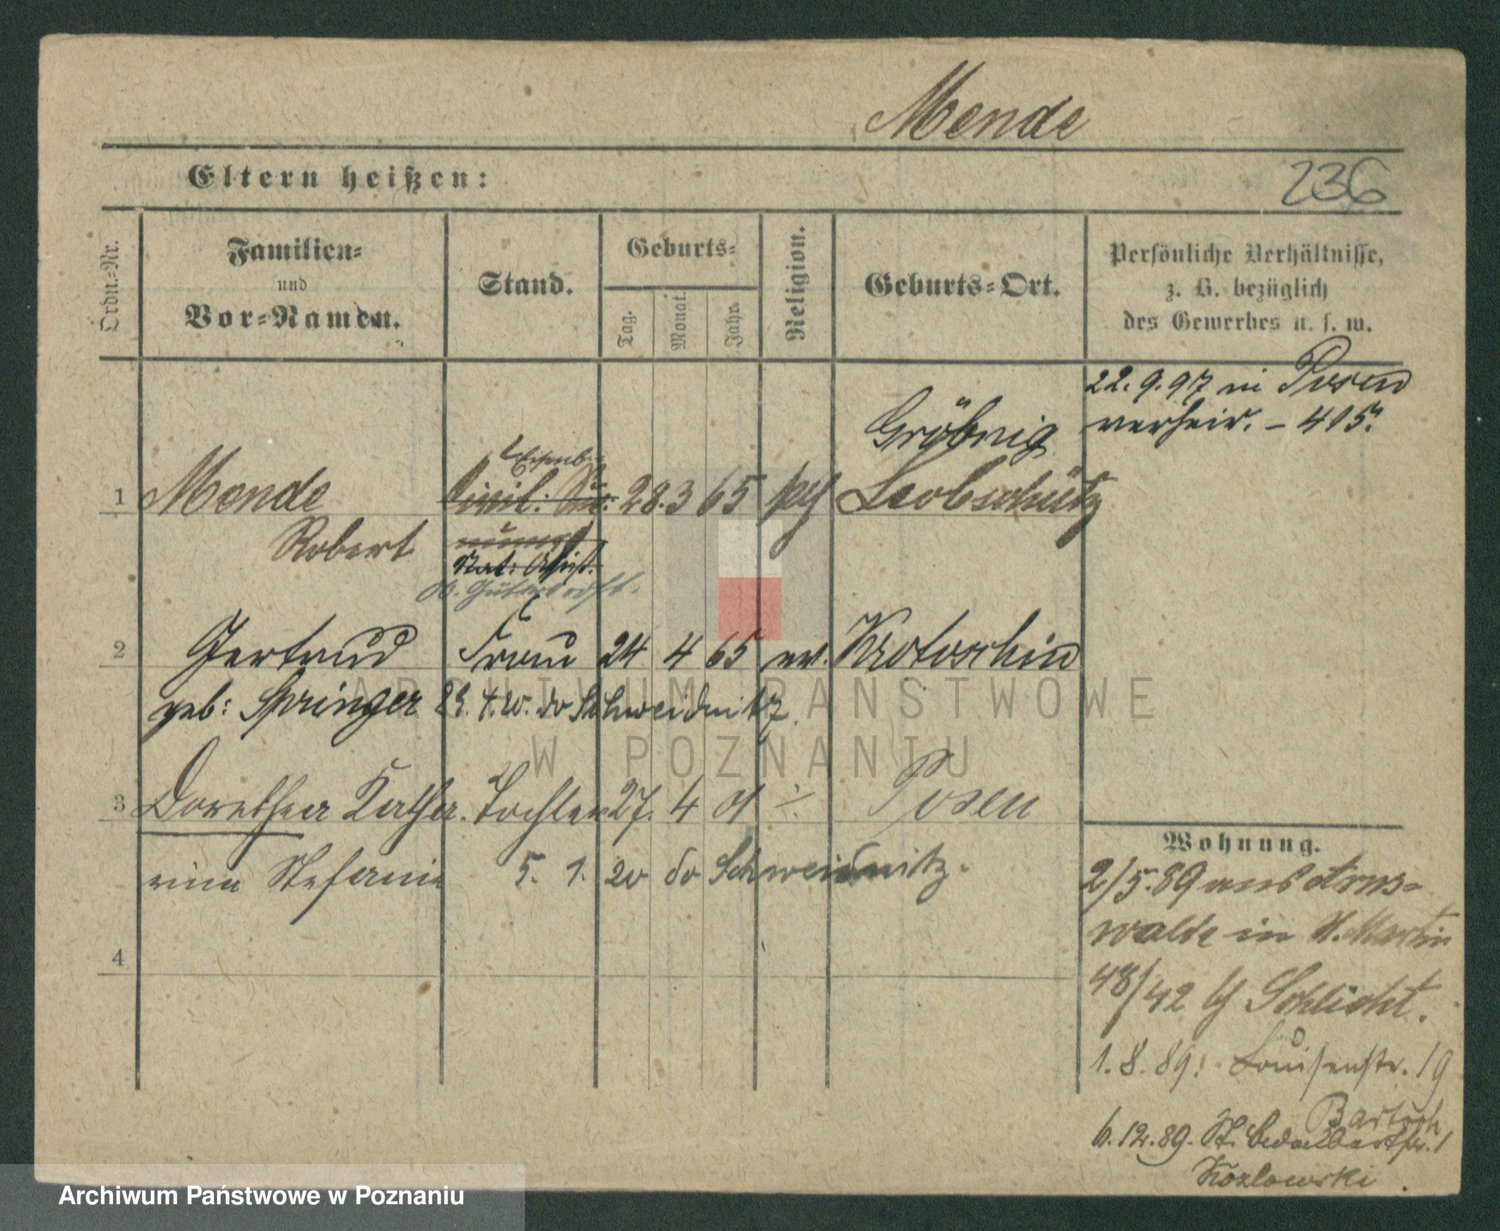 Mende
236
Eltern heißen:
Ordn.-Nr.
Familien-
und
Vor-Namen.
Stand.
Geburts-
Tag.
Monat.
Jahr.
Religion.
Geburts-Ort.
Persönliche Verhältnisse,
z. B. bezüglich
des Gewerbes u. s. w.
22.9.97 in Posen
verheir. - 415.
Gröbnig
1 Mende Civil: 28. 3 65 Leobschütz
Robert
2 Gertrud Frau 24 4 65 ev. Krotoschin
geb: Springer 23. 4. 20. do Schweidnitz
3 Dorothea Katha. Tochter 27. 4 01 ·/. Posen
rina Stefanie 5. 1. 20 do Schweidnitz.
4
Wohnung.
2/5.89 aus Arns-
walde in St. Martin
48/42 b/ Schlicht.
1. 8. 89. Louisenstr. 19
Bartsch
6.12.89.
Kozlowski.
ARCHIWUM PAŃSTWOWE
W POZNANIU
Archiwum Państwowe w Poznaniu